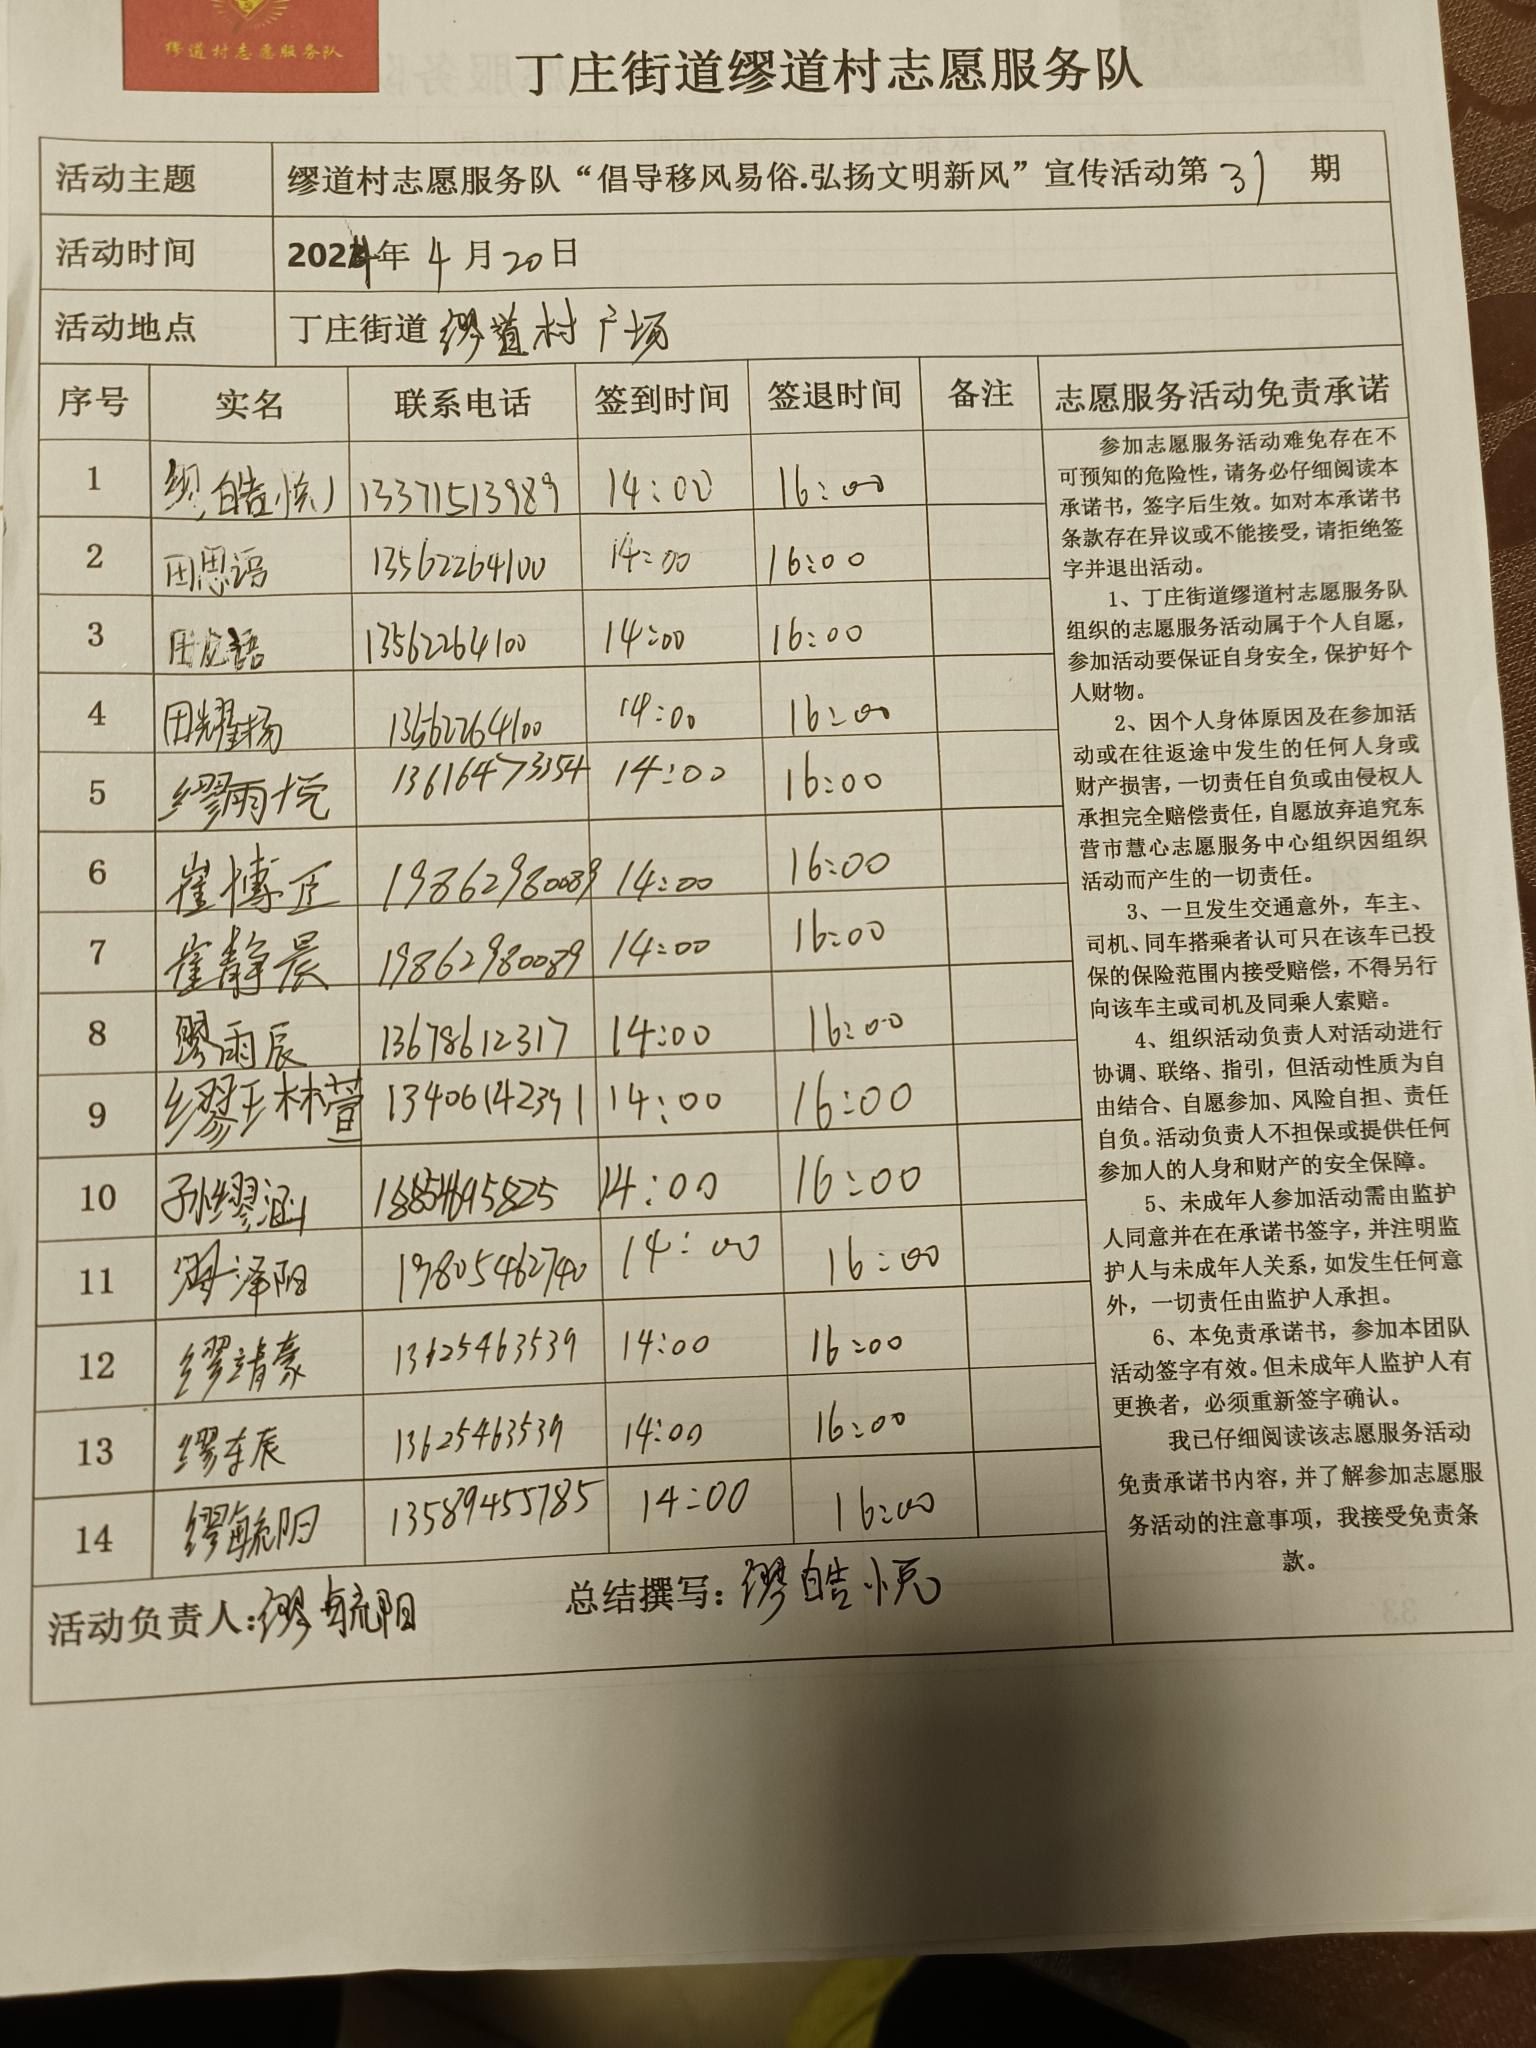 缪道村志愿服务队
丁庄街道缪道村志愿服务队
活动主题 缪道村志愿服务队“倡导移风易俗.弘扬文明新风”宣传活动第31期
活动时间 2024年4月20日
活动地点 丁庄街道缪道村广场
序号 实名 联系电话 签到时间 签退时间 备注 志愿服务活动免责承诺
1 缪皓悦 13371513989 14:00 16:00
2 田思语 13562264100 14:00 16:00
3 田 语 13562264100 14:00 16:00
4 田耀扬 13562264100 14:00 16:00
5 缪雨悦 13616473354 14:00 16:00
6 崔博 19862980089 14:00 16:00
7 崔静晨 19862980089 14:00 16:00
8 缪雨辰 13678612317 14:00 16:00
9 缪王林萱 13406142391 14:00 16:00
10 孙缪涵 14:00 16:00
11 缪泽阳 19805462740 14:00 16:00
12 缪靖豪 13625463539 14:00 16:00
13 缪东辰 13625463539 14:00 16:00
14 缪毓阳 13589455785 14:00 16:00
活动负责人:缪毓阳 总结撰写:缪皓悦
参加志愿服务活动难免存在不
可预知的危险性,请务必仔细阅读本
承诺书,签字后生效。如对本承诺书
条款存在异议或不能接受,请拒绝签
字并退出活动。
1、丁庄街道缪道村志愿服务队
组织的志愿服务活动属于个人自愿,
参加活动要保证自身安全,保护好个
人财物。
2、因个人身体原因及在参加活
动或在往返途中发生的任何人身或
财产损害,一切责任自负或由侵权人
承担完全赔偿责任,自愿放弃追究东
营市慧心志愿服务中心组织因组织
活动而产生的一切责任。
3、一旦发生交通意外,车主、
司机、同车搭乘者认可只在该车已投
保的保险范围内接受赔偿,不得另行
向该车主或司机及同乘人索赔。
4、组织活动负责人对活动进行
协调、联络、指引,但活动性质为自
由结合、自愿参加、风险自担、责任
自负。活动负责人不担保或提供任何
参加人的人身和财产的安全保障。
5、未成年人参加活动需由监护
人同意并在在承诺书签字,并注明监
护人与未成年人关系,如发生任何意
外,一切责任由监护人承担。
6、本免责承诺书,参加本团队
活动签字有效。但未成年人监护人有
更换者,必须重新签字确认。
我已仔细阅读该志愿服务活动
免责承诺书内容,并了解参加志愿服
务活动的注意事项,我接受免责条
款。